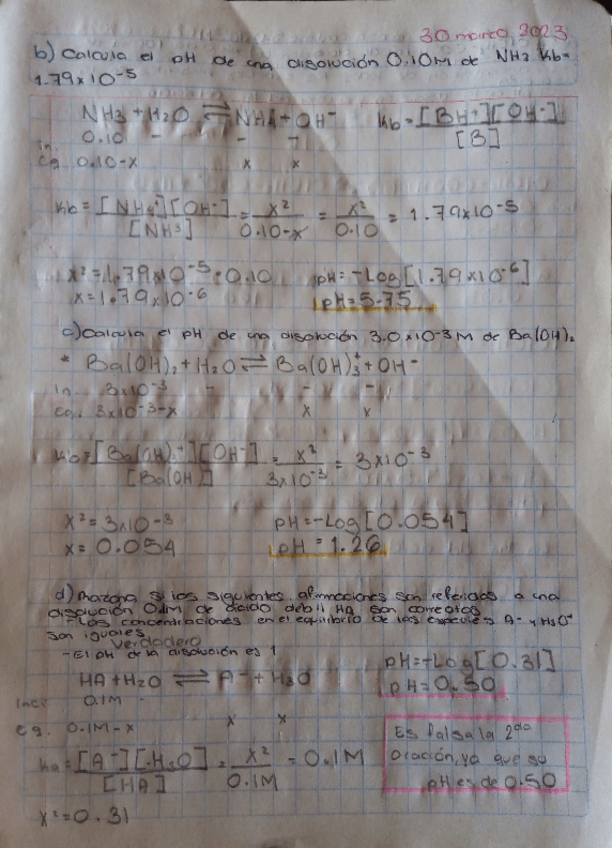 30 marzo, 2023
b) Calcula el pH de una disolución 0.10M de NH3. Kb=
1.79x10-5
NH3 + H2O ⇌ NH4 + OH- Kb = [BH+][OH-]
[B]
in. 0.10 - - -
eq. 0.10-x x x
Kb = [NH4+][OH-] = x² = x² = 1.79x10-5
[NH3] 0.10-x 0.10
x² = 1.79x10-5 · 0.10 pH = -Log[1.79x10-6]
x = 1.79x10-6 pH = 5.75
c) Calcula el pH de una disolución 3.0x10-3 M de Ba(OH)2
* Ba(OH)2 + H2O ⇌ Ba(OH)3+ + OH-
In. 3x10-3 - - -
eq. 3x10-3-x x x
Kb = [Ba(OH) +][OH-] = x² = 3x10-3
[Ba(OH)] 3x10-3
x² = 3x10-3 pH = -Log[0.054]
x = 0.054 pH = 1.26
d) Razona si las siguientes afirmaciones son referidas a una
disolución 0.1M de ácido débil HA son correctas
- Las concentraciones en el equilibrio de las especies A- y H3O+
son iguales
Verdadero
- El pH de la disolución es 1 pH = -Log[0.31]
HA + H2O ⇌ A- + H3O pH = 0.50
Inci 0.1M -
eq. 0.1M-x x x
Ka = [A-][H3O] = x² = 0.1M
[HA] 0.1M
x² = 0.31
Es falsa la 2da
oración, ya que su
pH es de 0.50